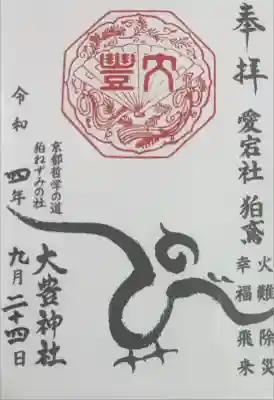 奉拝
愛宕社 狛鳶
火難除災
幸福飛来
大豊
京都哲学の道
狛ねずみの社
大豊神社
令和四年
九月二十四日